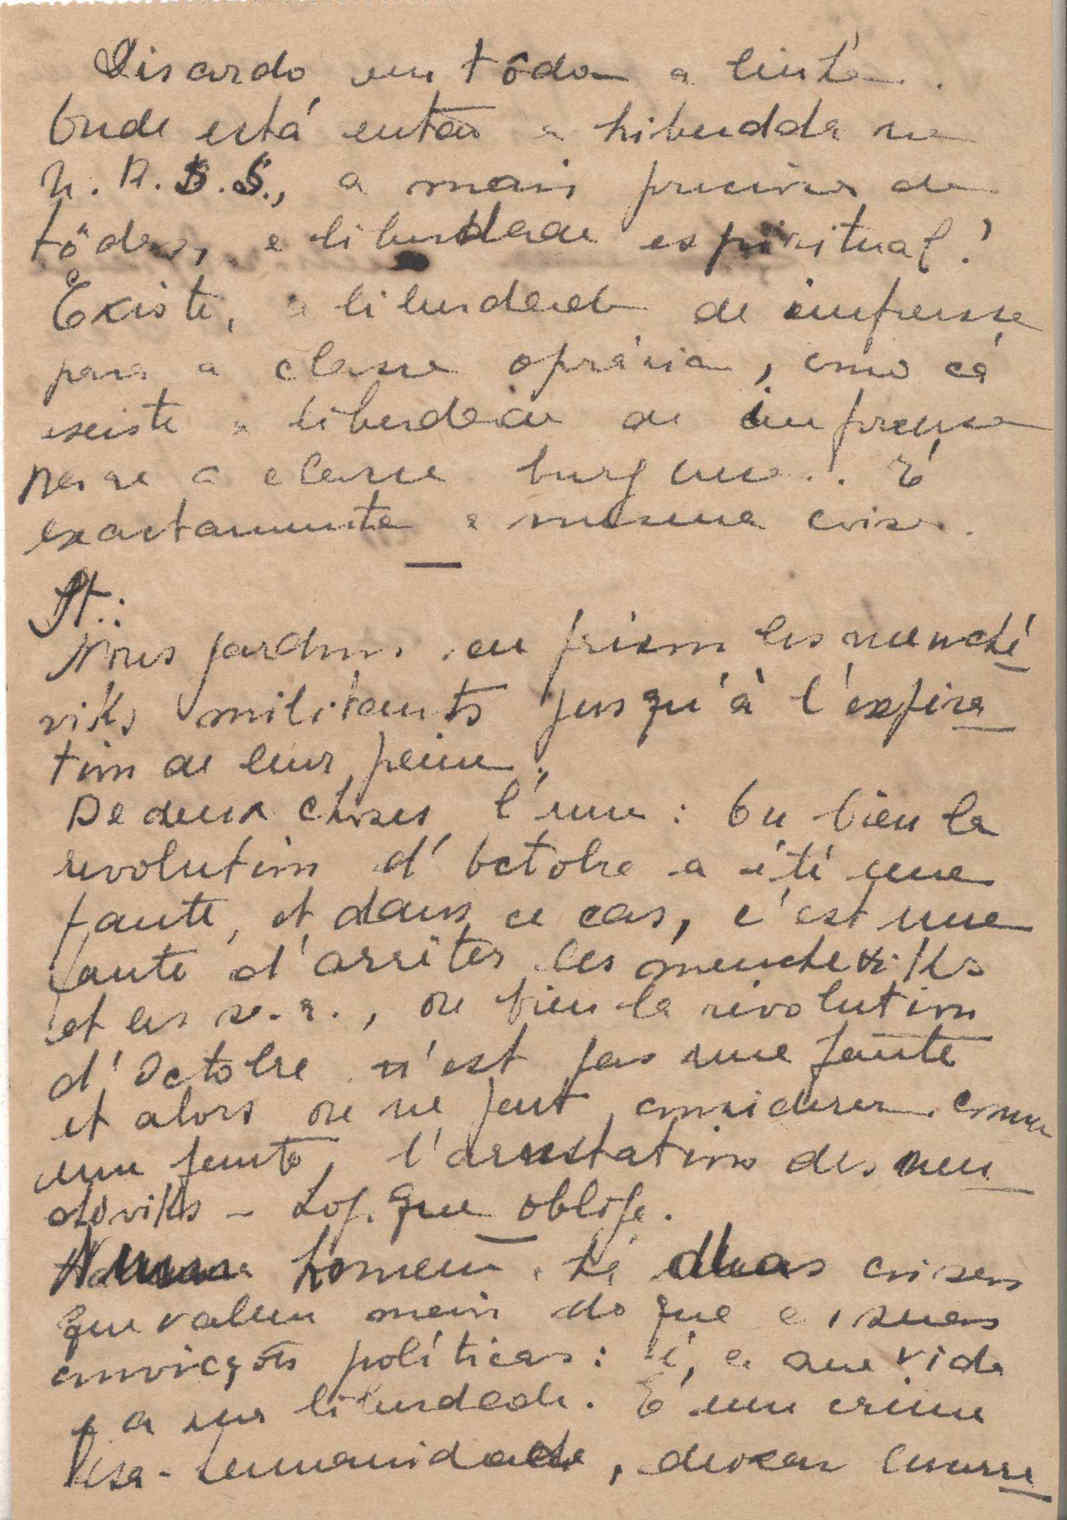 Discordo em tôda a linha.
Onde está então a liberdade na
U.R.S.S., a mais preciosa de
tôdas, a liberdade espiritual?
Existe, a liberdade de imprensa
para a classe operária, como cá
existe a liberdade de imprensa
para a classe burguesa... É
exactamente a mesma coisa.
—
St.:
Nous gardons en prison les menché
viks militants jusqu'à l'expira
tion de leur peine.
De deux choses l'une: Ou bien la
révolution d'Octobre a été une
faute, et dans ce cas, c'est une
faute d'arrêter les mencheviks
et les s.-r., ou bien la révolution
d'Octobre n'est pas une faute
et alors on ne peut considérer comme
une faute, l'arrestation des men
cheviks — Logique oblige.
Num homem há duas coisas
que valem mais do que as suas
convicções políticas: é, a sua vida
e a sua liberdade. É um crime
lesa-humanidade, deixar encarre